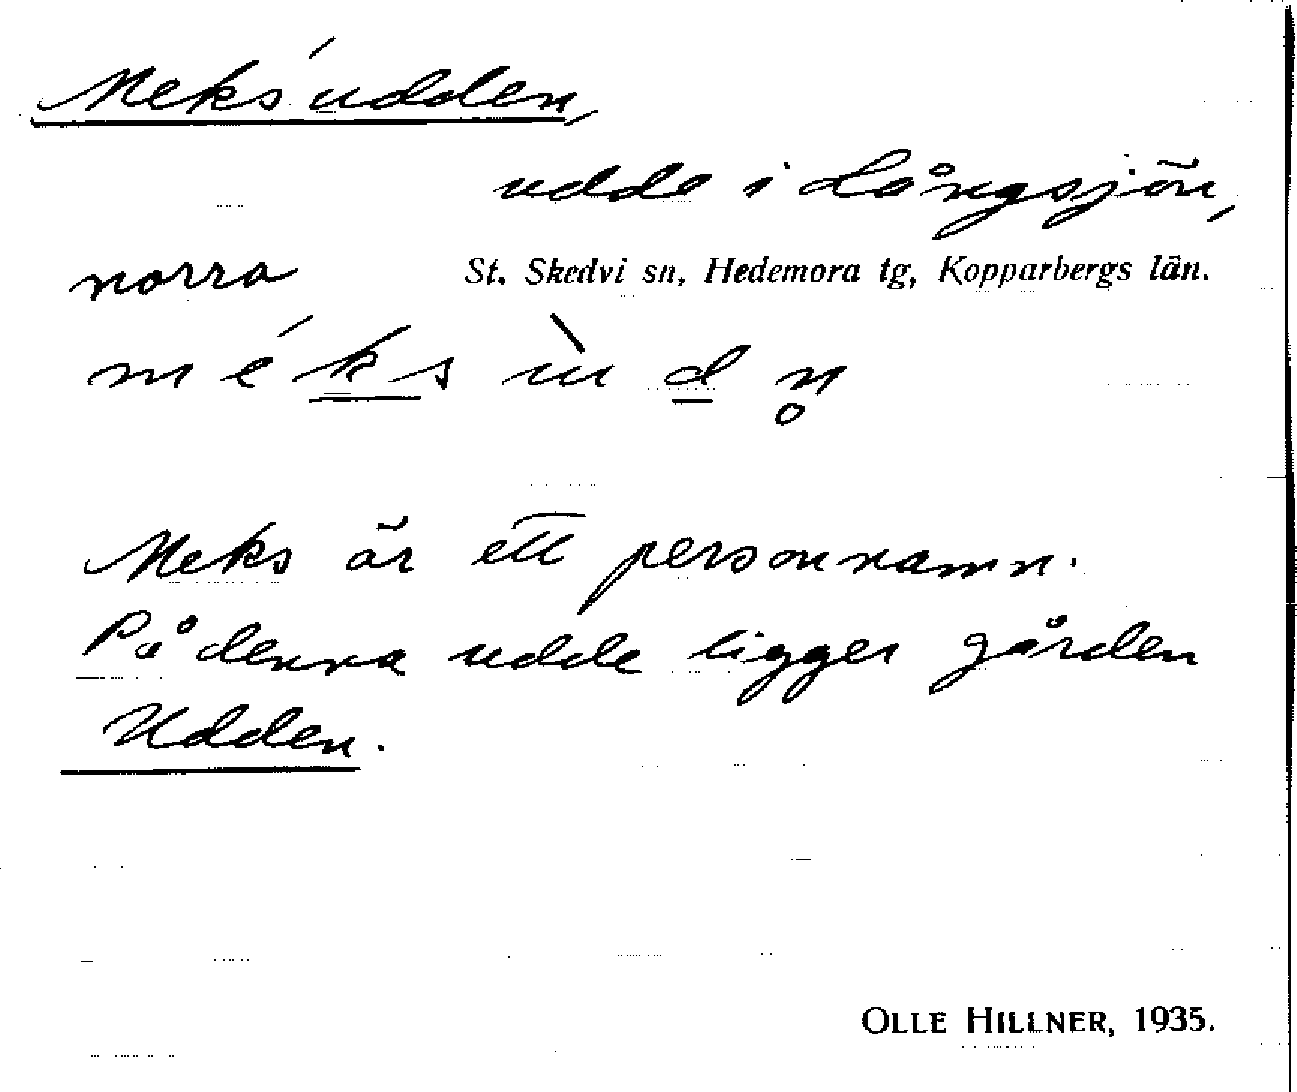 Meks´udden,
udde i Långsjön,
norra St. Skedvi sn, Hedemora tg, Kopparbergs län.
méks ùdn̥
Meks är ett personnamn.
På denna udde ligger gården
Udden.
OLLE HILLNER, 1935.